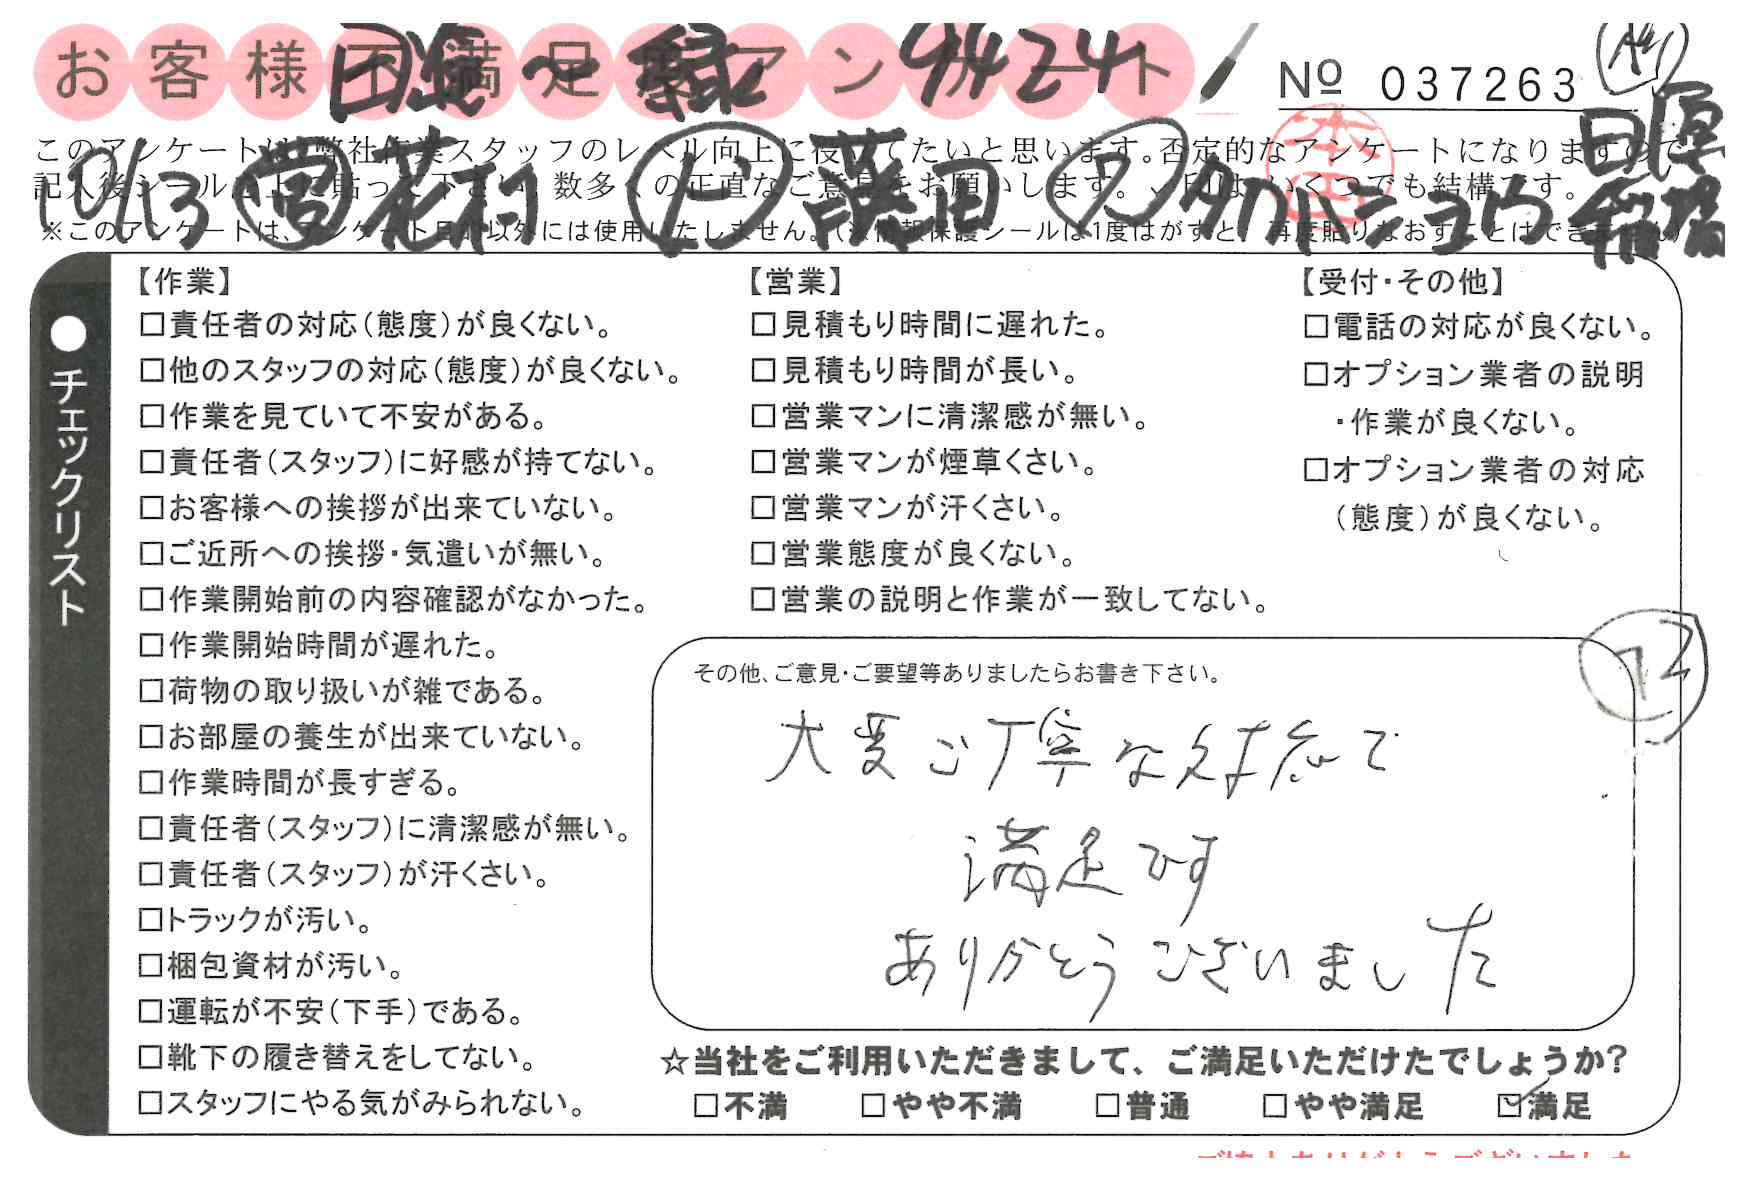 お客様不満足度アンケート
目黒〜緑 9424
No 037263
10/13 営 花村 ド 藤田
本田
このアンケートは、弊社作業スタッフのレベル向上に役立てたいと思います。否定的なアンケートになりますので
記入後シールを上に貼って下さい。数多くの正直なご意見をお願いします。✓印はいくつでも結構です。
※このアンケートは、アンケート目的以外には使用いたしません。(※情報保護シールは1度はがすと、再度貼りなおすことはできません)
●チェックリスト
【作業】
□責任者の対応(態度)が良くない。
□他のスタッフの対応(態度)が良くない。
□作業を見ていて不安がある。
□責任者(スタッフ)に好感が持てない。
□お客様への挨拶が出来ていない。
□ご近所への挨拶・気遣いが無い。
□作業開始前の内容確認がなかった。
□作業開始時間が遅れた。
□荷物の取り扱いが雑である。
□お部屋の養生が出来ていない。
□作業時間が長すぎる。
□責任者(スタッフ)に清潔感が無い。
□責任者(スタッフ)が汗くさい。
□トラックが汚い。
□梱包資材が汚い。
□運転が不安(下手)である。
□靴下の履き替えをしてない。
□スタッフにやる気がみられない。
【営業】
□見積もり時間に遅れた。
□見積もり時間が長い。
□営業マンに清潔感が無い。
□営業マンが煙草くさい。
□営業マンが汗くさい。
□営業態度が良くない。
□営業の説明と作業が一致してない。
【受付・その他】
□電話の対応が良くない。
□オプション業者の説明
・作業が良くない。
□オプション業者の対応
(態度)が良くない。
その他、ご意見・ご要望等ありましたらお書き下さい。
大変ご丁寧な対応で
満足です
ありがとうございました
☆当社をご利用いただきまして、ご満足いただけたでしょうか?
□不満 □やや不満 □普通 □やや満足 ☑満足